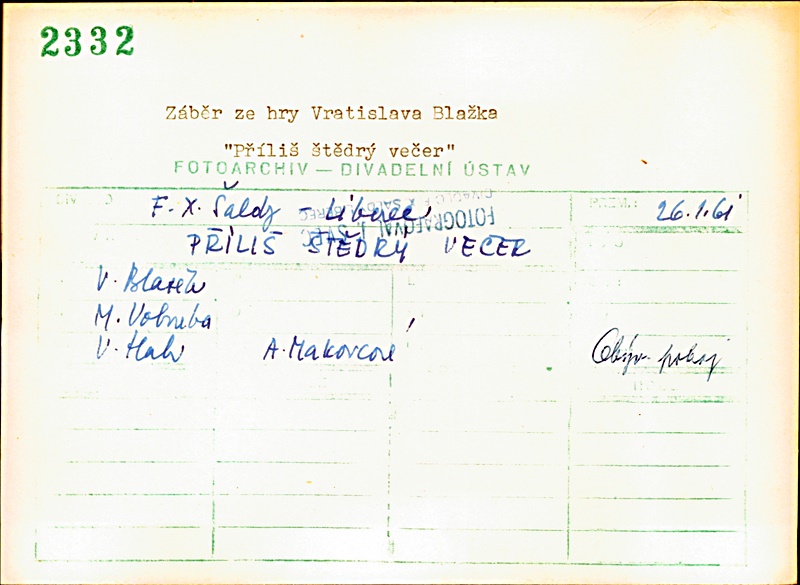 2332
Záběr ze hry Vratislava Blažka
"Příliš štědrý večer"
FOTOARCHIV — DIVADELNÍ ÚSTAV
F. X. Šaldy - Liberec 26.1.61
FOTOGRAFOVAL
PŘÍLIŠ ŠTĚDRÝ VEČER
V. Blažek
M. Vobruba
V. Hal A. Makovcová Obýv. pokoj